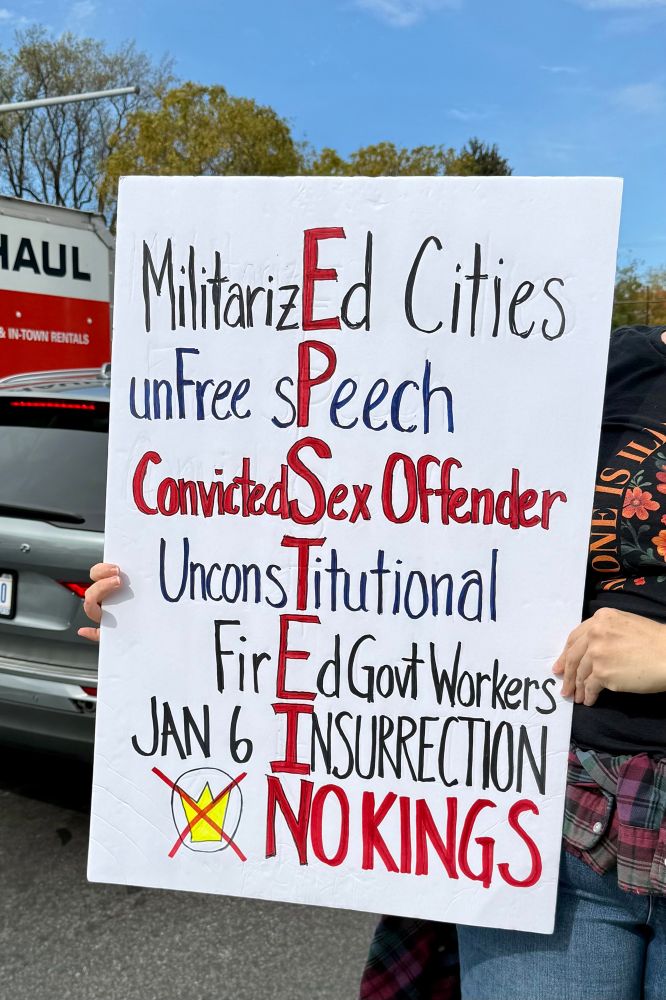 HAUL
& IN-TOWN RENTALS
MilitarizEd Cities
unFree sPeech
Convicted Sex Offender
UnconsTitutional
FirEd Govt Workers
JAN 6 INSURRECTION
NO KINGS
ONE IS